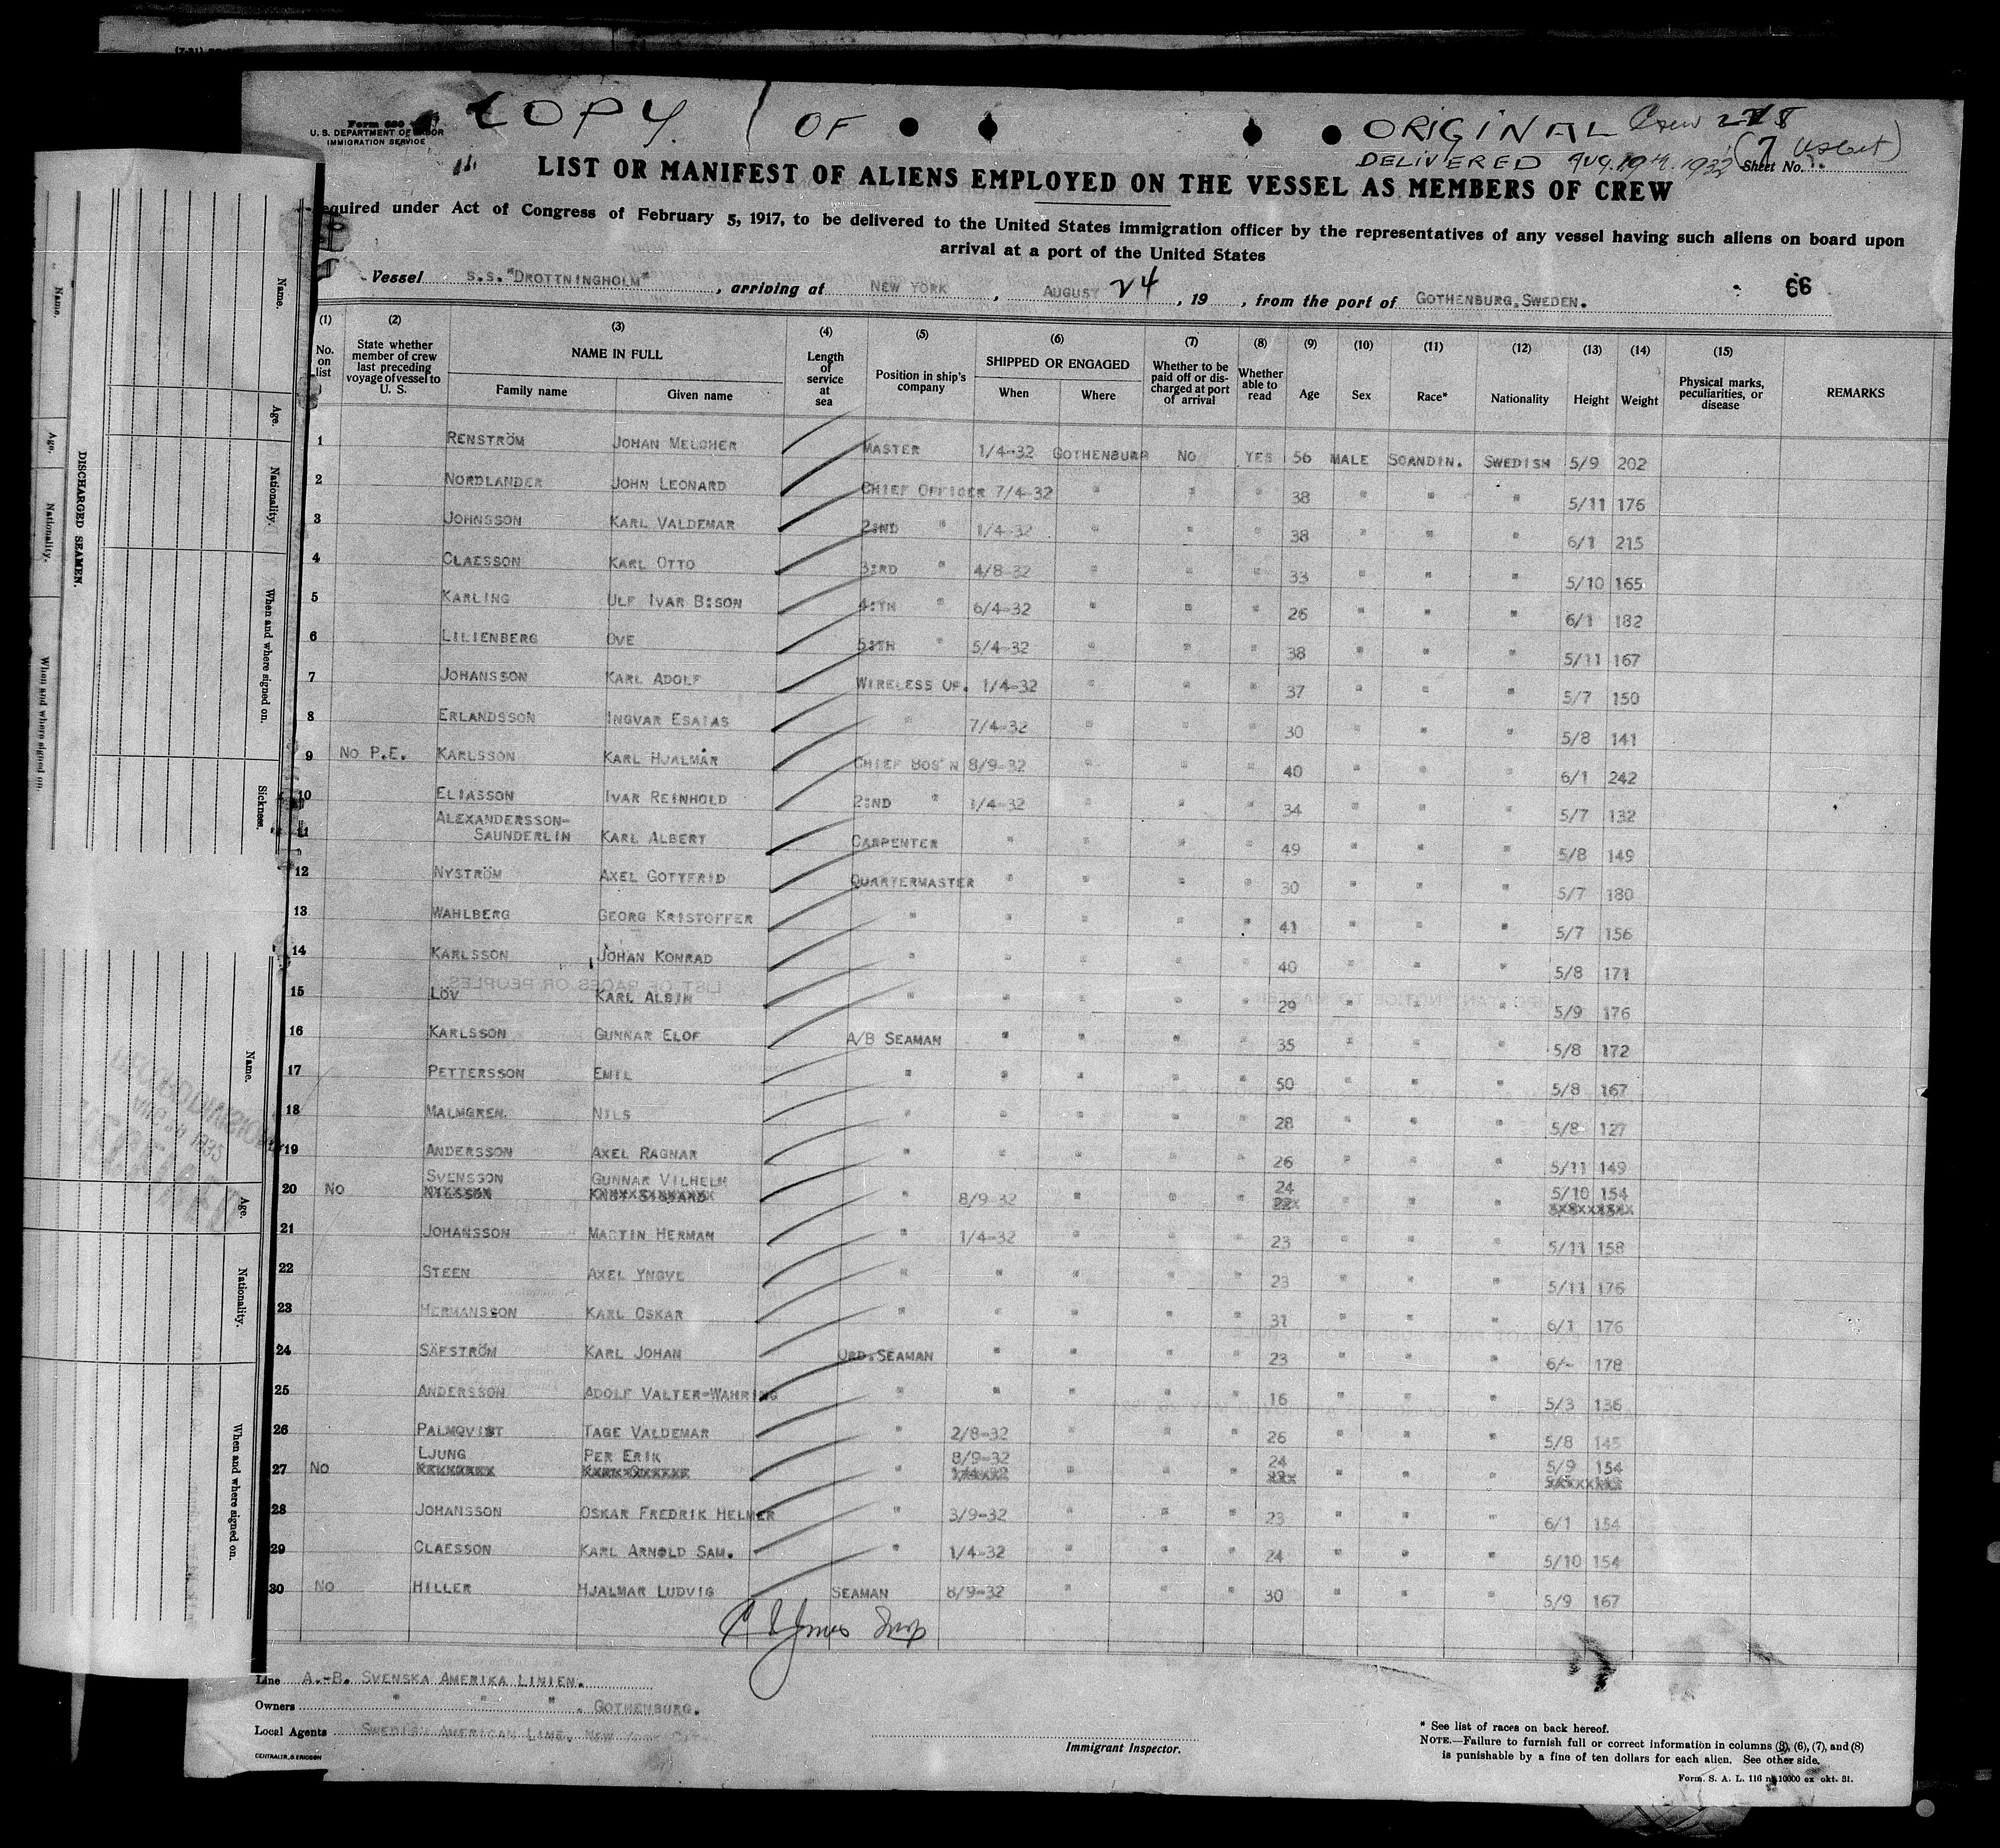 COPY OF ORIGINAL Crew
DELIVERED AUG. 19th. 1932
Form 680
U. S. DEPARTMENT OF LABOR
IMMIGRATION SERVICE
Sheet No.
LIST OR MANIFEST OF ALIENS EMPLOYED ON THE VESSEL AS MEMBERS OF CREW
equired under Act of Congress of February 5, 1917, to be delivered to the United States immigration officer by the representatives of any vessel having such aliens on board upon
arrival at a port of the United States
Vessel S.S. "DROTTNINGHOLM", arriving at NEW YORK, AUGUST 24, 19 , from the port of GOTHENBURG, SWEDEN. 66
(1) (2) (3) (4) (5) (6) (7) (8) (9) (10) (11) (12) (13) (14) (15)
No. on list
State whether member of crew last preceding voyage of vessel to U. S.
NAME IN FULL
Family name Given name
Length of service at sea
Position in ship's company
SHIPPED OR ENGAGED
When Where
Whether to be paid off or discharged at port of arrival
Whether able to read
Age Sex Race* Nationality Height Weight
Physical marks, peculiarities, or disease
REMARKS
1 RENSTRÖM JOHAN MELCHER MASTER 1/4-32 GOTHENBURG NO YES 56 MALE SCANDIN. SWEDISH 5/9 202
2 NORDLANDER JOHN LEONARD CHIEF OFFICER 7/4-32 " " " 38 " " " 5/11 176
3 JOHNSSON KARL VALDEMAR 2:ND " 1/4-32 " " " 38 " " " 6/1 215
4 CLAESSON KARL OTTO 3:RD " 4/8-32 " " " 33 " " " 5/10 165
5 KARLING ULF IVAR B:SON 4:TH " 6/4-32 " " " 26 " " " 6/1 182
6 LILIENBERG OVE 5:TH " 5/4-32 " " " 38 " " " 5/11 167
7 JOHANSSON KARL ADOLF WIRELESS OP. 1/4-32 " " " 37 " " " 5/7 150
8 ERLANDSSON INGVAR ESAIAS " 7/4-32 " " " 30 " " " 5/8 141
9 NO P.E. KARLSSON KARL HJALMAR CHIEF BOS'N 8/9-32 " " " 40 " " " 6/1 242
10 ELIASSON IVAR REINHOLD 2:ND " 1/4-32 " " " 34 " " " 5/7 132
ALEXANDERSSON-
11 SAUNDERLIN KARL ALBERT CARPENTER " " " " 49 " " " 5/8 149
12 NYSTRÖM AXEL GOTTFRID QUARTERMASTER " " " " 30 " " " 5/7 180
13 WAHLBERG GEORG KRISTOFFER " " " " " 41 " " " 5/7 156
14 KARLSSON JOHAN KONRAD " " " " " 40 " " " 5/8 171
15 LÖV KARL ALBIN " " " " " 29 " " " 5/9 176
16 KARLSSON GUNNAR ELOF A/B SEAMAN " " " " 35 " " " 5/8 172
17 PETTERSSON EMIL " " " " " 50 " " " 5/8 167
18 MALMGREN. NILS " " " " " 28 " " " 5/8 127
19 ANDERSSON AXEL RAGNAR " " " " " 26 " " " 5/11 149
SVENSSON GUNNAR VILHELM 24 5/10 154
20 NO " 8/9-32 " " " " " "
21 JOHANSSON MARTIN HERMAN " 1/4-32 " " " 23 " " " 5/11 158
22 STEEN AXEL YNGVE " " " " " 23 " " " 5/11 176
23 HERMANSSON KARL OSKAR " " " " " 31 " " " 6/1 176
24 SÄFSTRÖM KARL JOHAN ORD. SEAMAN " " " " 23 " " " 6/- 178
25 ANDERSSON ADOLF VALTER-WAHRING " " " " " 16 " " " 5/3 136
26 PALMQVIST TAGE VALDEMAR " 2/8-32 " " " 26 " " " 5/8 145
LJUNG PER ERIK 8/9-32 24 5/9 154
27 NO " " " " " " "
28 JOHANSSON OSKAR FREDRIK HELMER " 3/9-32 " " " 23 " " " 6/1 154
29 CLAESSON KARL ARNOLD SAM. " 1/4-32 " " " 24 " " " 5/10 154
30 NO HILLER HJALMAR LUDVIG SEAMAN 8/9-32 " " " 30 " " " 5/9 167
Line A.-B. SVENSKA AMERIKA LINIEN.
Owners " " " . GOTHENBURG.
Local Agents SWEDISH AMERICAN LINE, NEW YORK
Immigrant Inspector.
CENTRALTR., G. ERICSON
* See list of races on back hereof.
NOTE.—Failure to furnish full or correct information in columns (3), (6), (7), and (8)
is punishable by a fine of ten dollars for each alien. See other side.
Form. S. A. L. 116 10000 ex okt. 31.
DISCHARGED SEAMEN.
Name. Age. Nationality. When and where signed on. Sickness.
Name. Age. Nationality. When and where signed on.
Name. Age. Nationality. When and where signed on.